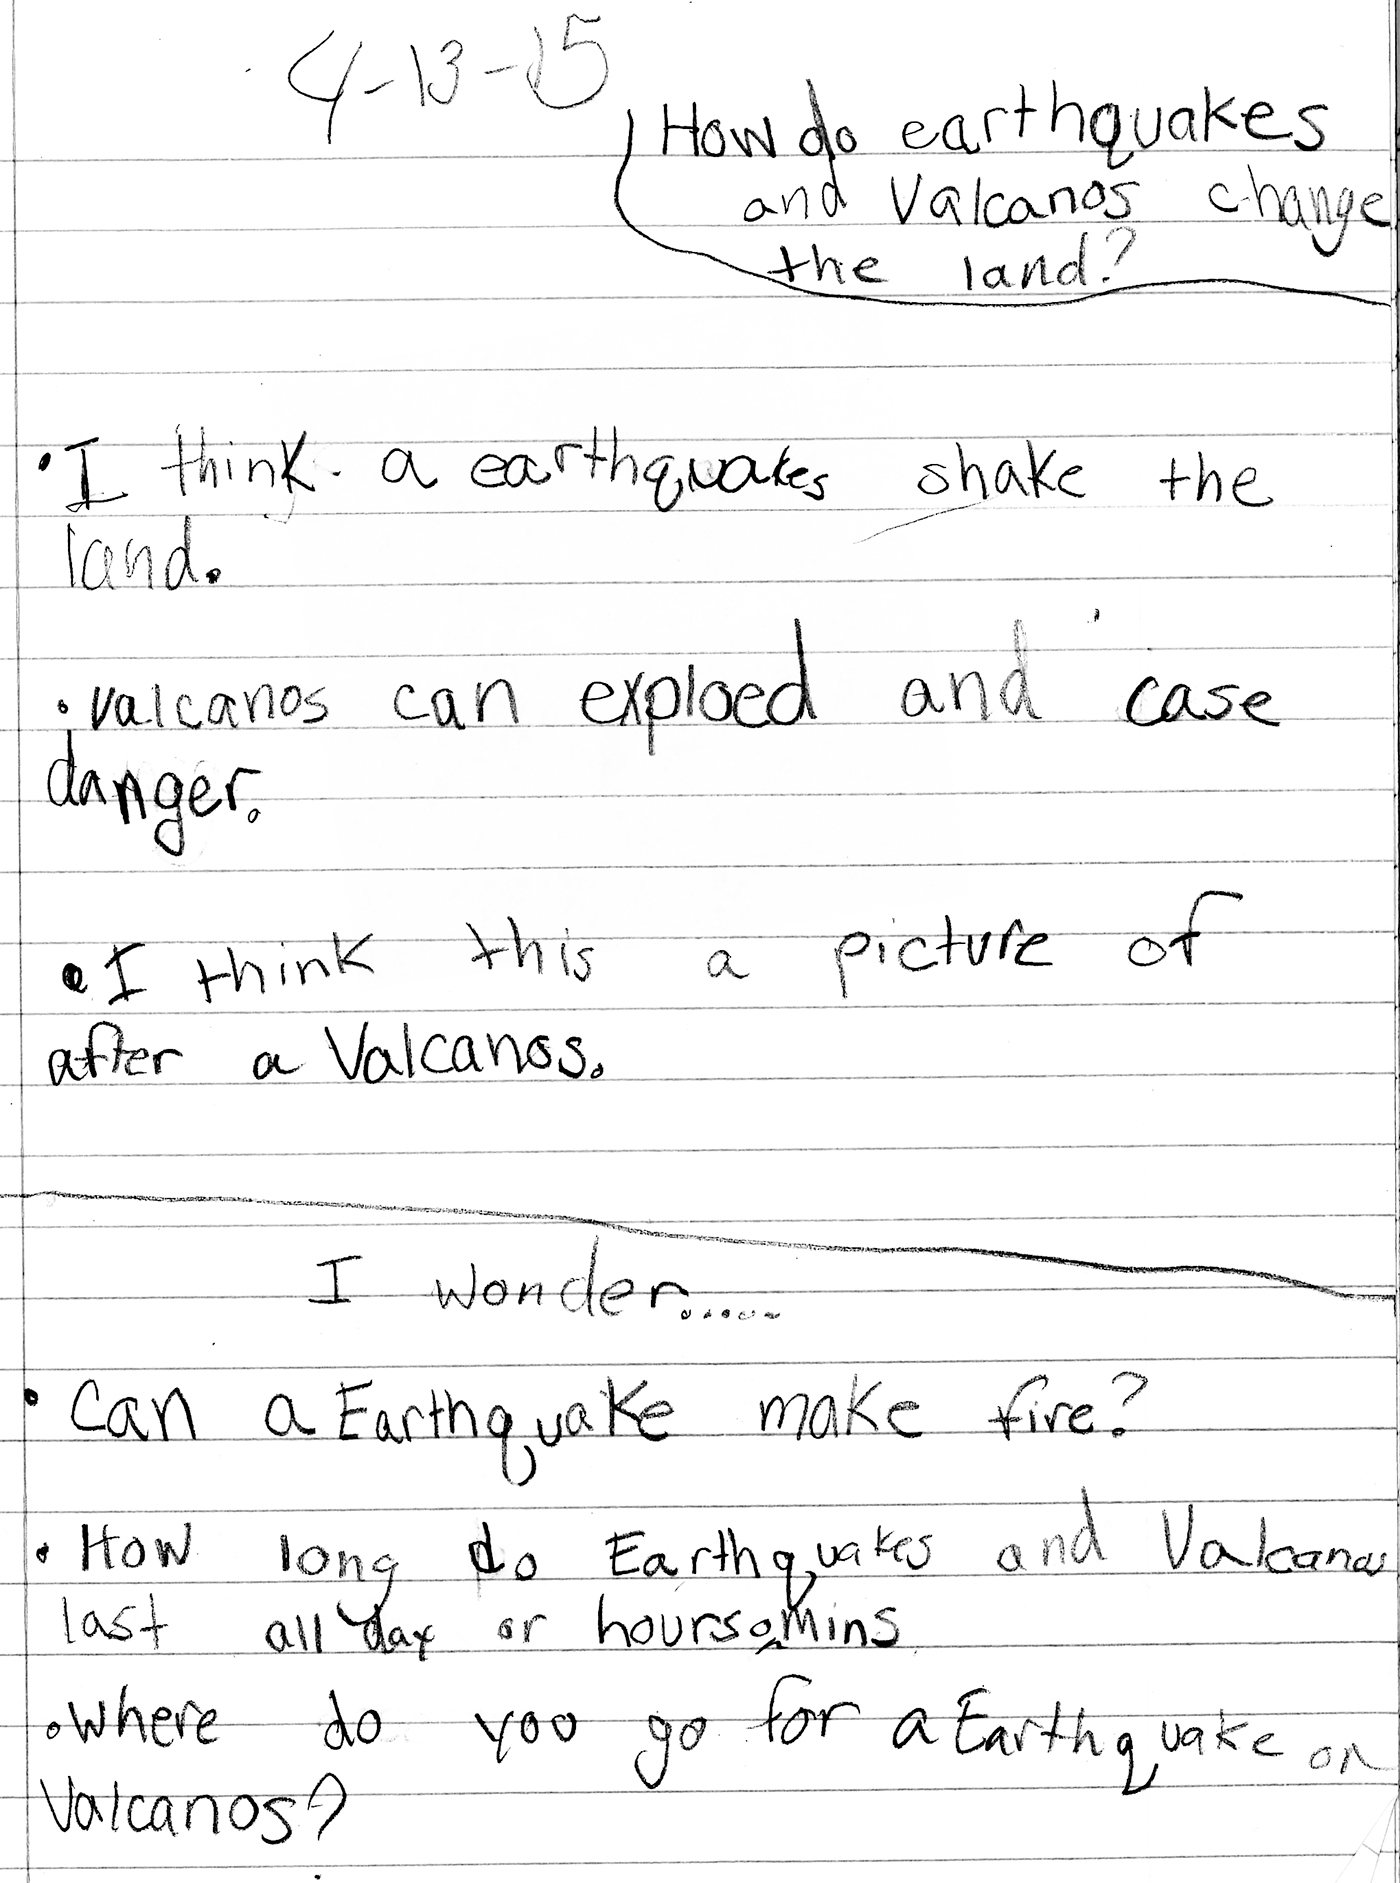 4-13-15
How do earthquakes
and Valcanos change
the land?
• I think a earthquakes shake the
land.
• valcanos can exploed and case
danger.
• I think this a picture of
after a Valcanos.
I wonder.....
• Can a Earthquake make fire?
• How long do Earthquakes and Valcanos
last all day or hours mins
• Where do yoo go for a Earthquake or
Valcanos?